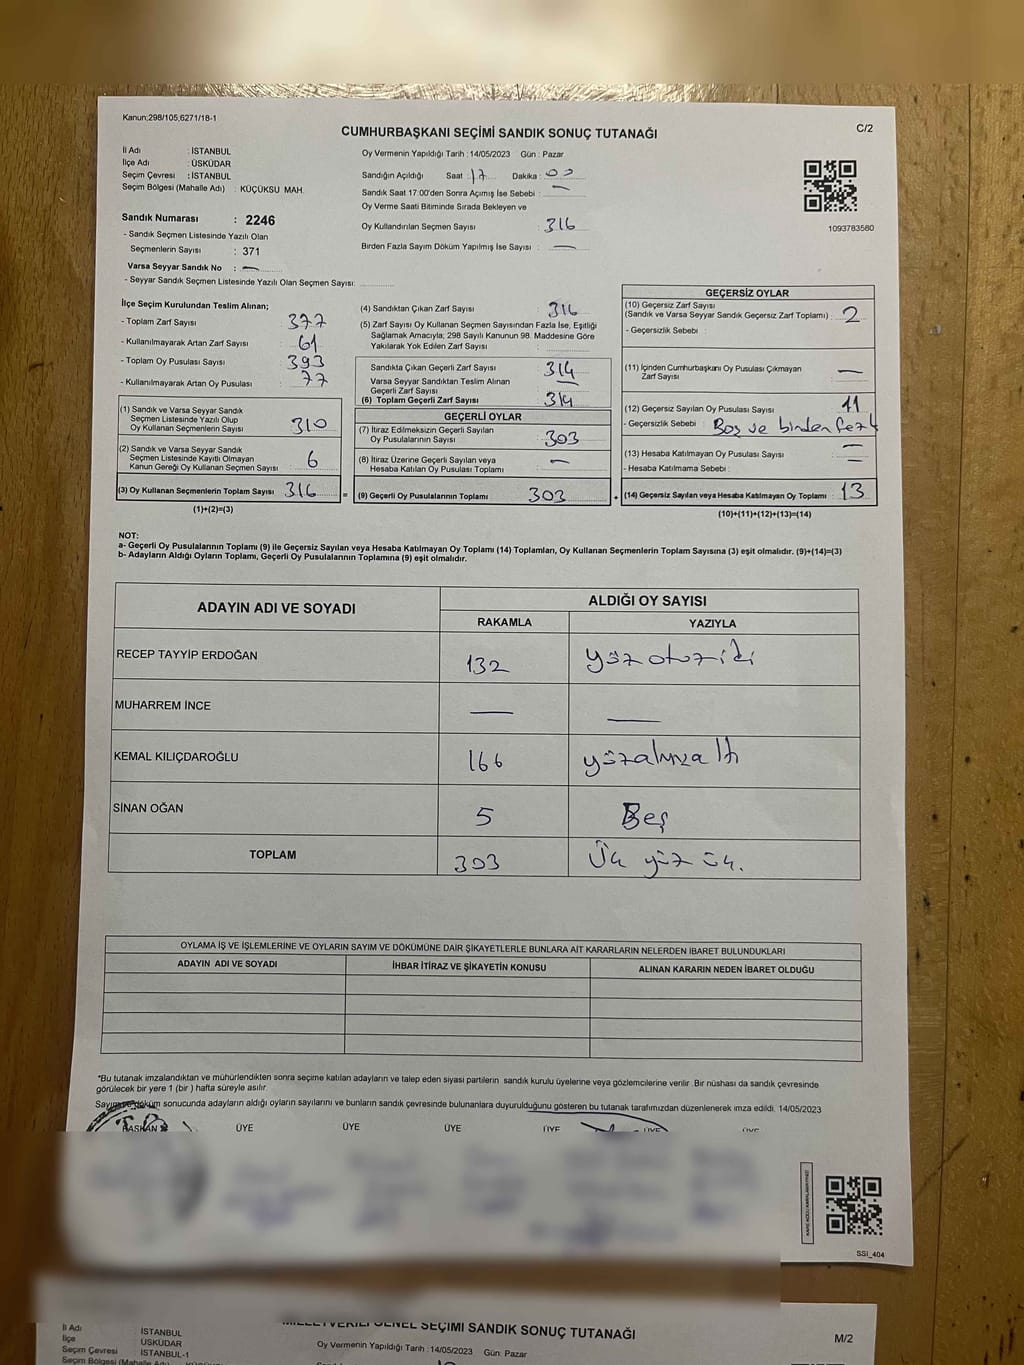 Kanun;298/105,6271/18-1
C/2
CUMHURBAŞKANI SEÇİMİ SANDIK SONUÇ TUTANAĞI
İl Adı : İSTANBUL
İlçe Adı : ÜSKÜDAR
Seçim Çevresi : İSTANBUL
Seçim Bölgesi (Mahalle Adı) : KÜÇÜKSU MAH.
Sandık Numarası : 2246
- Sandık Seçmen Listesinde Yazılı Olan
Seçmenlerin Sayısı : 371
Varsa Seyyar Sandık No : —
- Seyyar Sandık Seçmen Listesinde Yazılı Olan Seçmen Sayısı:
Oy Vermenin Yapıldığı Tarih : 14/05/2023 Gün : Pazar
Sandığın Açıldığı Saat : 17 Dakika : 00
Sandık Saat 17:00'den Sonra Açımış İse Sebebi : —
Oy Verme Saati Bitiminde Sırada Bekleyen ve
Oy Kullandırılan Seçmen Sayısı : 316
Birden Fazla Sayım Döküm Yapılmış İse Sayısı : —
1093783580
İlçe Seçim Kurulundan Teslim Alınan;
- Toplam Zarf Sayısı : 377
- Kullanılmayarak Artan Zarf Sayısı : 61
- Toplam Oy Pusulası Sayısı : 393
- Kullanılmayarak Artan Oy Pusulası : 77
(1) Sandık ve Varsa Seyyar Sandık
Seçmen Listesinde Yazılı Olup
Oy Kullanan Seçmenlerin Sayısı : 310
(2) Sandık ve Varsa Seyyar Sandık
Seçmen Listesinde Kayıtlı Olmayan
Kanun Gereği Oy Kullanan Seçmen Sayısı : 6
(3) Oy Kullanan Seçmenlerin Toplam Sayısı : 316
(1)+(2)=(3)
(4) Sandıktan Çıkan Zarf Sayısı : 316
(5) Zarf Sayısı Oy Kullanan Seçmen Sayısından Fazla İse, Eşitliği
Sağlamak Amacıyla; 298 Sayılı Kanunun 98. Maddesine Göre
Yakılarak Yok Edilen Zarf Sayısı :
Sandıkta Çıkan Geçerli Zarf Sayısı : 314
Varsa Seyyar Sandıktan Teslim Alınan
Geçerli Zarf Sayısı : —
(6) Toplam Geçerli Zarf Sayısı : 314
GEÇERLİ OYLAR
(7) İtiraz Edilmeksizin Geçerli Sayılan
Oy Pusulalarının Sayısı : 303
(8) İtiraz Üzerine Geçerli Sayılan veya
Hesaba Katılan Oy Pusulası Toplamı : —
= (9) Geçerli Oy Pusulalarının Toplamı 303 +
GEÇERSİZ OYLAR
(10) Geçersiz Zarf Sayısı
(Sandık ve Varsa Seyyar Sandık Geçersiz Zarf Toplamı) : 2
- Geçersizlik Sebebi :
(11) İçinden Cumhurbaşkanı Oy Pusulası Çıkmayan
Zarf Sayısı : —
(12) Geçersiz Sayılan Oy Pusulası Sayısı : 11
- Geçersizlik Sebebi : Boş ve birden fazla
(13) Hesaba Katılmayan Oy Pusulası Sayısı : —
- Hesaba Katılmama Sebebi : —
(14) Geçersiz Sayılan veya Hesaba Katılmayan Oy Toplamı : 13
(10)+(11)+(12)+(13)=(14)
NOT:
a- Geçerli Oy Pusulalarının Toplamı (9) ile Geçersiz Sayılan veya Hesaba Katılmayan Oy Toplamı (14) Toplamları, Oy Kullanan Seçmenlerin Toplam Sayısına (3) eşit olmalıdır. (9)+(14)=(3)
b- Adayların Aldığı Oyların Toplamı, Geçerli Oy Pusulalarının Toplamına (9) eşit olmalıdır.
ADAYIN ADI VE SOYADI ALDIĞI OY SAYISI
RAKAMLA YAZIYLA
RECEP TAYYİP ERDOĞAN 132 yüzotuziki
MUHARREM İNCE — —
KEMAL KILIÇDAROĞLU 166 yüzaltmışaltı
SİNAN OĞAN 5 Beş
TOPLAM 303 Üç yüz üç.
OYLAMA İŞ VE İŞLEMLERİNE VE OYLARIN SAYIM VE DÖKÜMÜNE DAİR ŞİKAYETLERLE BUNLARA AİT KARARLARIN NELERDEN İBARET BULUNDUKLARI
ADAYIN ADI VE SOYADI İHBAR İTİRAZ VE ŞİKAYETİN KONUSU ALINAN KARARIN NEDEN İBARET OLDUĞU
*Bu tutanak imzalandıktan ve mühürlendikten sonra seçime katılan adayların ve talep eden siyasi partilerin sandık kurulu üyelerine veya gözlemcilerine verilir. Bir nüshası da sandık çevresinde
görülecek bir yere 1 (bir ) hafta süreyle asılır.
Sayım ve döküm sonucunda adayların aldığı oyların sayılarını ve bunların sandık çevresinde bulunanlara duyurulduğunu gösteren bu tutanak tarafımızdan düzenlenerek imza edildi. 14/05/2023
BAŞKAN ÜYE ÜYE ÜYE ÜYE ÜYE ÜYE
SSİ_404
MİLLETVEKİLİ GENEL SEÇİMİ SANDIK SONUÇ TUTANAĞI
M/2
İl Adı : İSTANBUL
İlçe : ÜSKÜDAR
Seçim Çevresi : İSTANBUL-1
Oy Vermenin Yapıldığı Tarih : 14/05/2023 Gün: Pazar